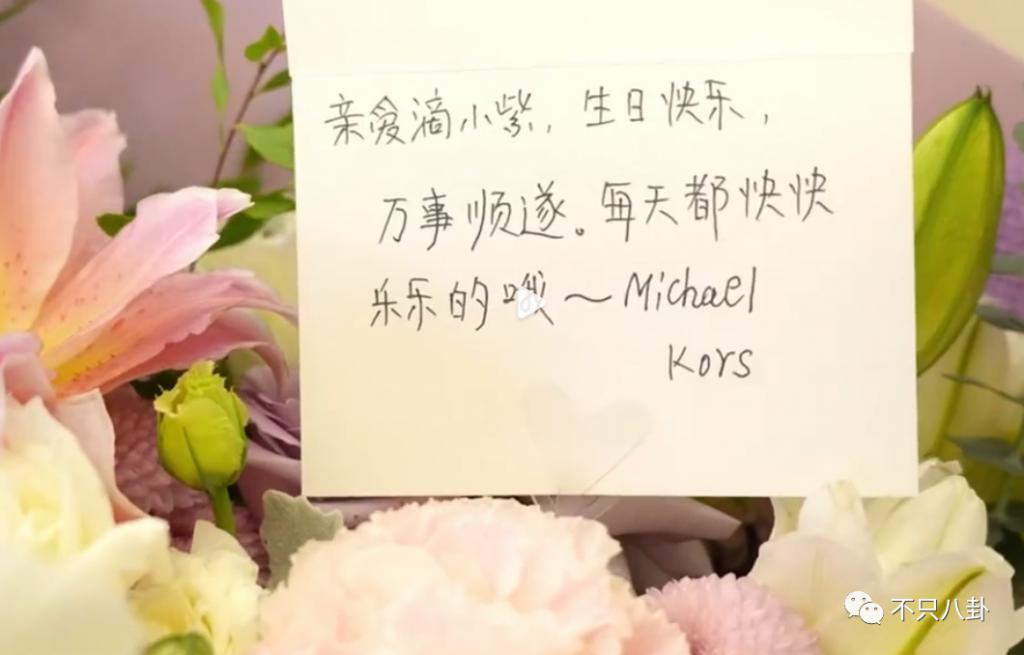 亲爱滴小紫，生日快乐，
万事顺遂。每天都快快
乐乐的哦～Michael
Kors
不只八卦